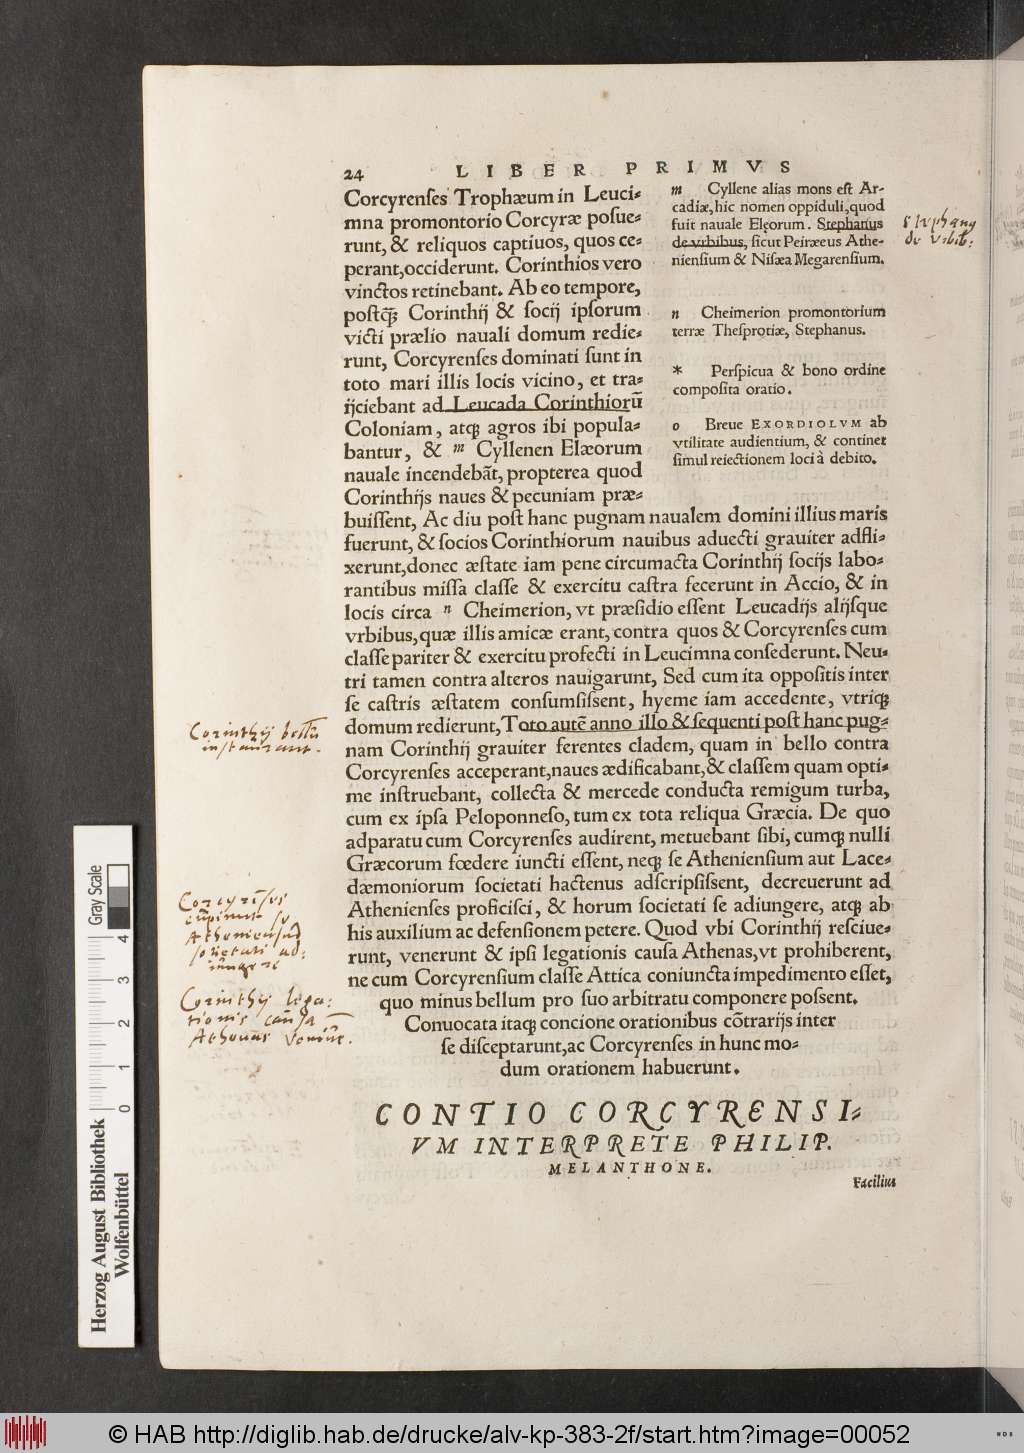 24 LIBER PRIMVS
Corcyrenſes Trophæum in Leuci-
mna promontorio Corcyræ poſue-
runt, & reliquos captiuos, quos ce-
perant,occiderunt. Corinthios vero
vinctos retinebant. Ab eo tempore,
poſtq̃ Corinthij & ſocij ipſorum
victi prælio nauali domum redie-
runt, Corcyrenſes dominati ſunt in
toto mari illis locis vicino, et tra-
ijciebant ad Leucada Corinthiorū
Coloniam, atq; agros ibi popula-
bantur, & m Cyllenen Elæorum
nauale incendebãt, propterea quod
Corinthijs naues & pecuniam præ-
buiſſent, Ac diu poſt hanc pugnam naualem domini illius maris
fuerunt, & ſocios Corinthiorum nauibus aduecti grauiter adfli-
xerunt,donec æſtate iam pene circumacta Corinthij ſocijs labo-
rantibus miſſa claſſe & exercitu caſtra fecerunt in Accio, & in
locis circa n Cheimerion, vt præſidio eſſent Leucadijs alijſque
vrbibus,quæ illis amicæ erant, contra quos & Corcyrenſes cum
claſſe pariter & exercitu profecti in Leucimna conſederunt. Neu-
tri tamen contra alteros nauigarunt, Sed cum ita oppoſitis inter
ſe caſtris æſtatem conſumſiſſent, hyeme iam accedente, vtriq;
domum redierunt, Toto autē anno illo & ſequenti poſt hanc pug-
nam Corinthij grauiter ferentes cladem, quam in bello contra
Corcyrenſes acceperant,naues ædificabant,& claſſem quam opti-
me inſtruebant, collecta & mercede conducta remigum turba,
cum ex ipſa Peloponneſo, tum ex tota reliqua Græcia. De quo
adparatu cum Corcyrenſes audirent, metuebant ſibi, cumq; nulli
Græcorum fœdere iuncti eſſent, neq; ſe Athenienſium aut Lace-
dæmoniorum ſocietati hactenus adſcripſiſſent, decreuerunt ad
Athenienſes proficiſci, & horum ſocietati ſe adiungere, atq; ab
his auxilium ac defenſionem petere. Quod vbi Corinthij reſciue-
runt, venerunt & ipſi legationis cauſa Athenas,vt prohiberent,
ne cum Corcyrenſium claſſe Attica coniuncta impedimento eſſet,
quo minus bellum pro ſuo arbitratu componere poſſent.
Conuocata itaq; concione orationibus cõtrarijs inter
ſe diſceptarunt,ac Corcyrenſes in hunc mo-
dum orationem habuerunt.
CONTIO CORCYRENSI-
VM INTERPRETE PHILIP.
MELANTHONE.
Facilius
m Cyllene alias mons eſt Ar-
cadiæ, hic nomen oppiduli,quod
fuit nauale Elęorum. Stephanus
de vrbibus, ſicut Peiræeus Athe-
nienſium & Niſæa Megarenſium.
n Cheimerion promontorium
terræ Theſprotiæ, Stephanus.
* Perſpicua & bono ordine
compoſita oratio.
o Breue EXORDIOLVM ab
vtilitate audientium, & continet
ſimul reiectionem loci à debito.
Stephanus
de vrbib:
Corinthij bellū
inſtaurant.
Corcyrēſes
cupiunt ſe
Athenienſiū
ſocietati ad-
iungere
Corinthij lega-
tionis cauſa
Athenas veniūt.
Gray Scale
0 1 2 3 4
Herzog August Bibliothek
Wolfenbüttel
© HAB http://diglib.hab.de/drucke/alv-kp-383-2f/start.htm?image=00052